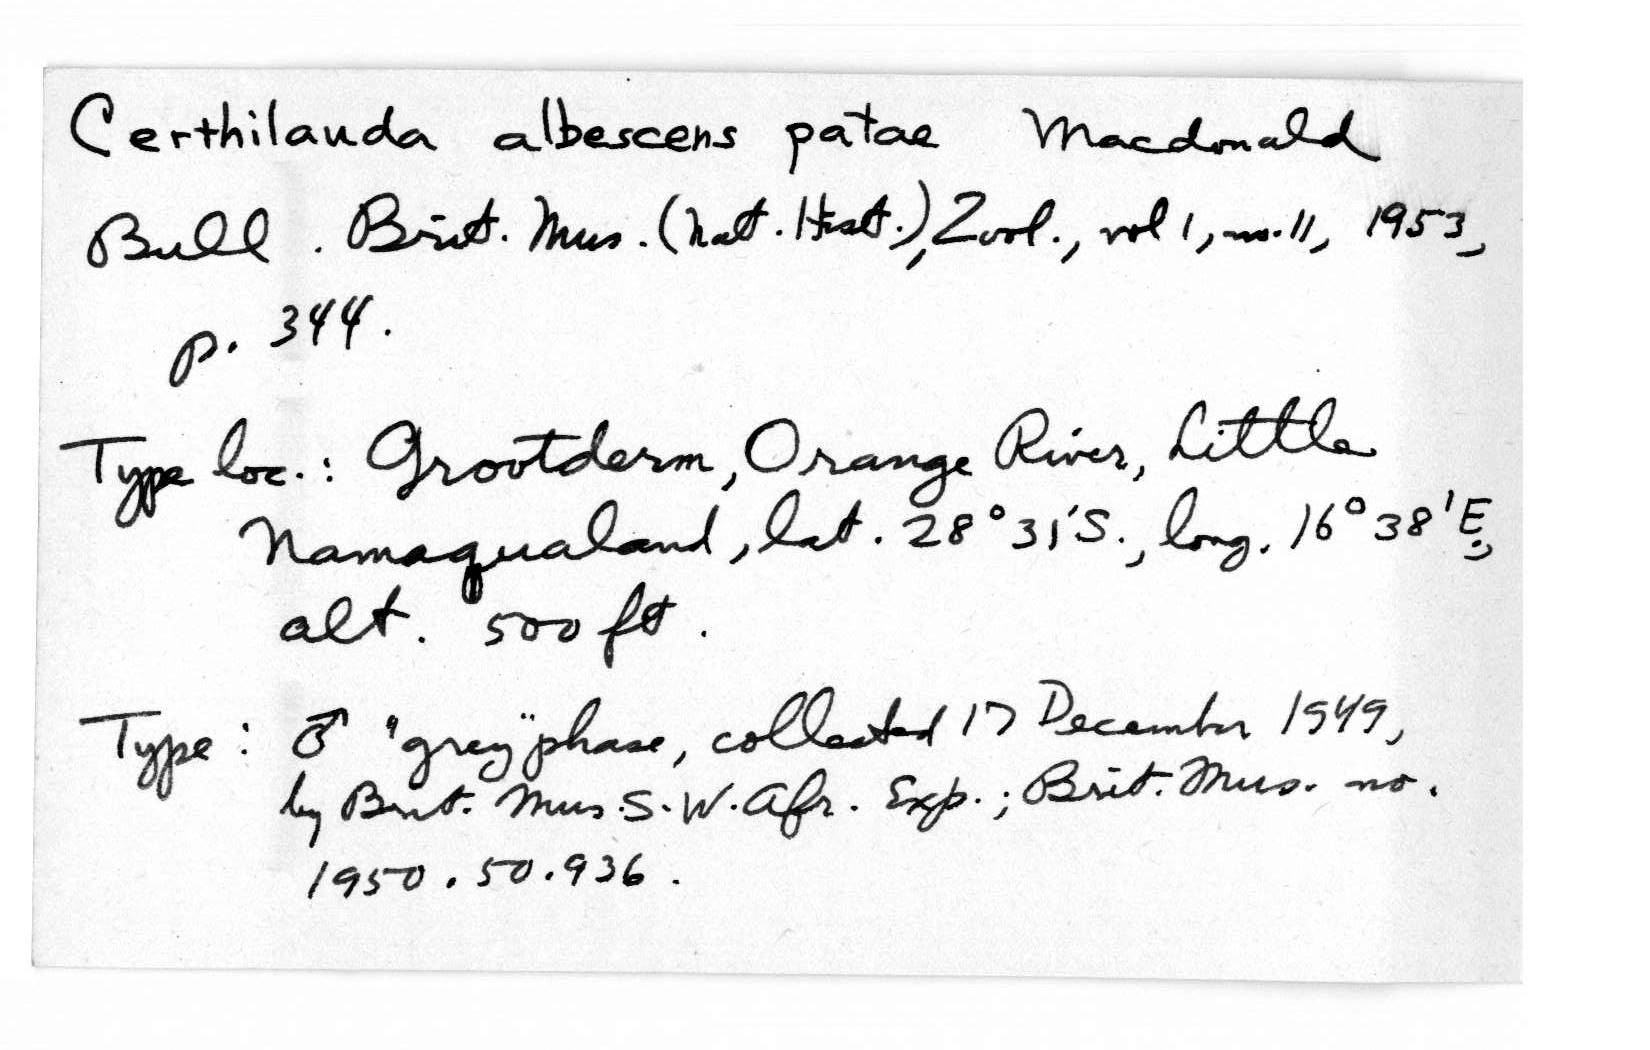 Certhilauda albescens patae Macdonald
Bull. Brit. Mus. (Nat. Hist.), Zool., vol 1, no. 11, 1953,
p. 344.
Type loc.: Grootderm, Orange River, Little
Namaqualand, lat. 28° 31'S., long. 16° 38'E.,
alt. 500 ft.
Type: ♂ "grey" phase, collected 17 December 1949,
by Brit. Mus. S.W. Afr. Exp.; Brit. Mus. no.
1950.50.936.